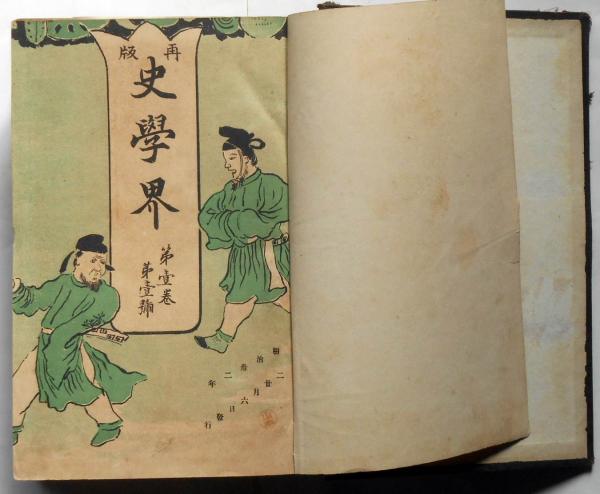 再版
史學界
第壹卷
第壹號
明治卅二年
二月廿六日發行